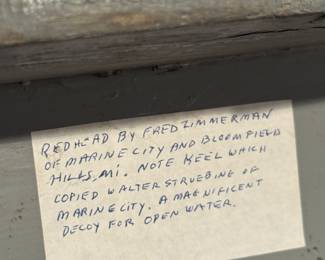 REDHEAD BY FRED ZIMMERMAN
OF MARINE CITY AND BLOOMFIELD
HILLS, MI. NOTE KEEL WHICH
COPIED WALTER STRUEBING OF
MARINE CITY. A MAGNIFICENT
DECOY FOR OPEN WATER.